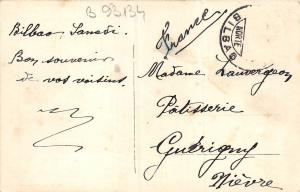 B 93134
Bilbao Samedi.
Bon souvenir
de vos voisins.
France
BILBAO
Madame Lauvergeon
Pâtisserie
Guérigny
Nièvre